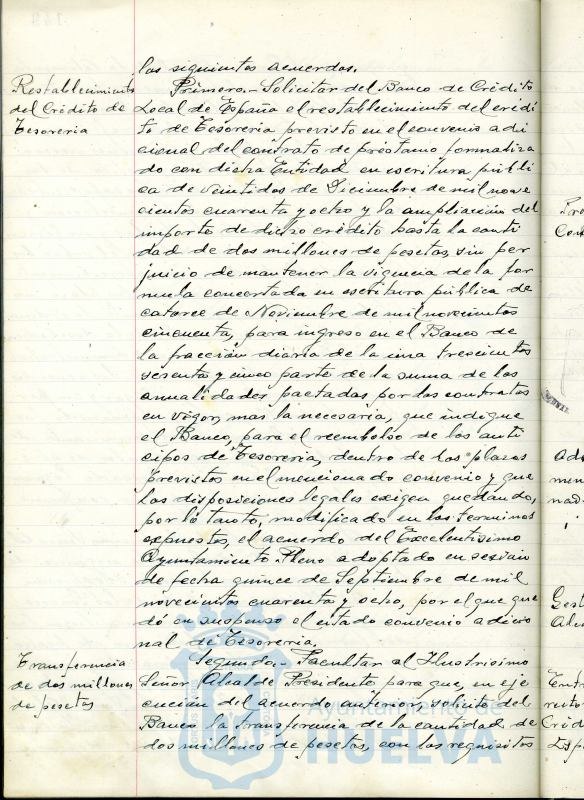 los siguientes acuerdos.
Restablecimiento
del Crédito de
Tesoreria
Primero.- Solicitar del Banco de Crédito
Local de España el restablecimiento del crédi
to de Tesoreria previsto en el convenio adi
cional del contrato de préstamo formaliza
do con dicha Entidad en escritura públi
ca de veintidos de Diciembre de mil nove
cientos cuarenta y ocho y la ampliación del
importe de dicho crédito hasta la canti
dad de dos millones de pesetas, sin per
juicio de mantener la vigencia de la for
mula concertada en escritura pública de
catorce de Noviembre de mil novecientos
cincuenta, para ingreso en el Banco de
la fracción diaria de la una trescientos
sesenta y cinco parte de la suma de las
anualidades pactadas por los contratos
en vigor, mas la necesaria, que indique
el Banco, para el reembolso de los anti
cipos de Tesoreria, dentro de los plazos
previstos en el mencionado convenio y que
las disposiciones legales exigen quedando,
por lo tanto, modificado en los terminos
expuestos, el acuerdo del Excelentisimo
Ayuntamiento Pleno adoptado en sesión
de fecha quince de Septiembre de mil
novecientos cuarenta y ocho, por el que que
dó en suspenso el citado convenio adicio
nal de Tesoreria.
Transferencia
de dos millones
de pesetas
Segundo.- Facultar al Ilustrisimo
Señor Alcalde Presidente para que, en eje
cución del acuerdo anterior, solicite del
Banco la transferencia de la cantidad de
dos millones de pesetas, con los requisitos
Ayuntamiento de
HUELVA